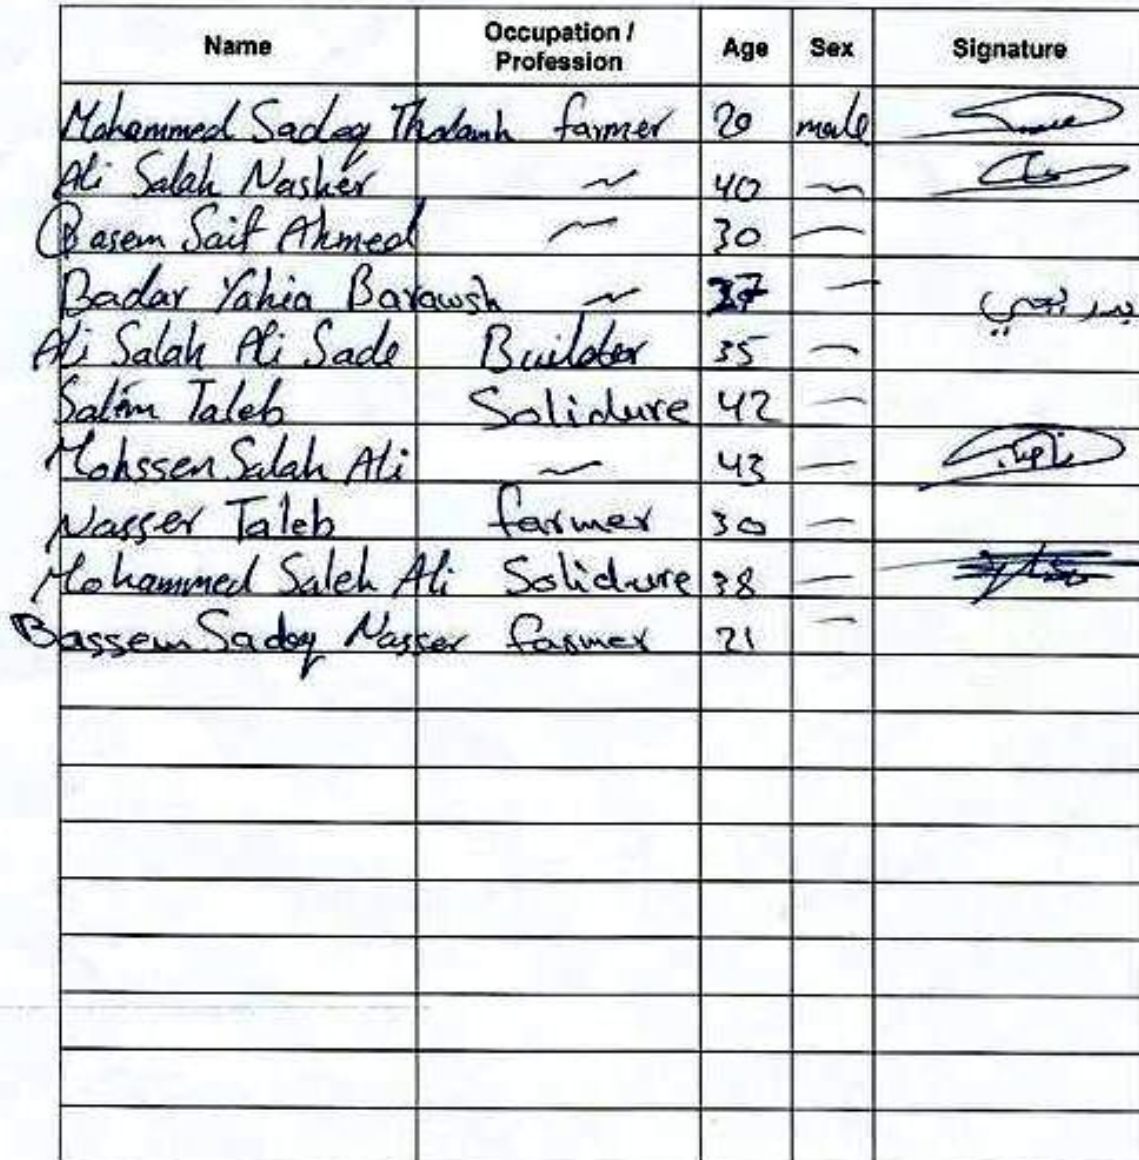 Name Occupation / Profession Age Sex Signature
Mohammed Sadeq farmer 20 male
Ali Salah Nasher ~ 40 ~
Basem Saif Ahmed ~ 30 —
Badar Yahia Barawsh ~ 37 — بدر يحيى
Ali Salah Ali Sade Builder 35 —
Salim Taleb Solidure 42 —
Mohssen Salah Ali ~ 43 —
Nasser Taleb farmer 30 —
Mohammed Saleh Ali Solidure 38 —
Bassem Sadeq Nasser farmer 21 —